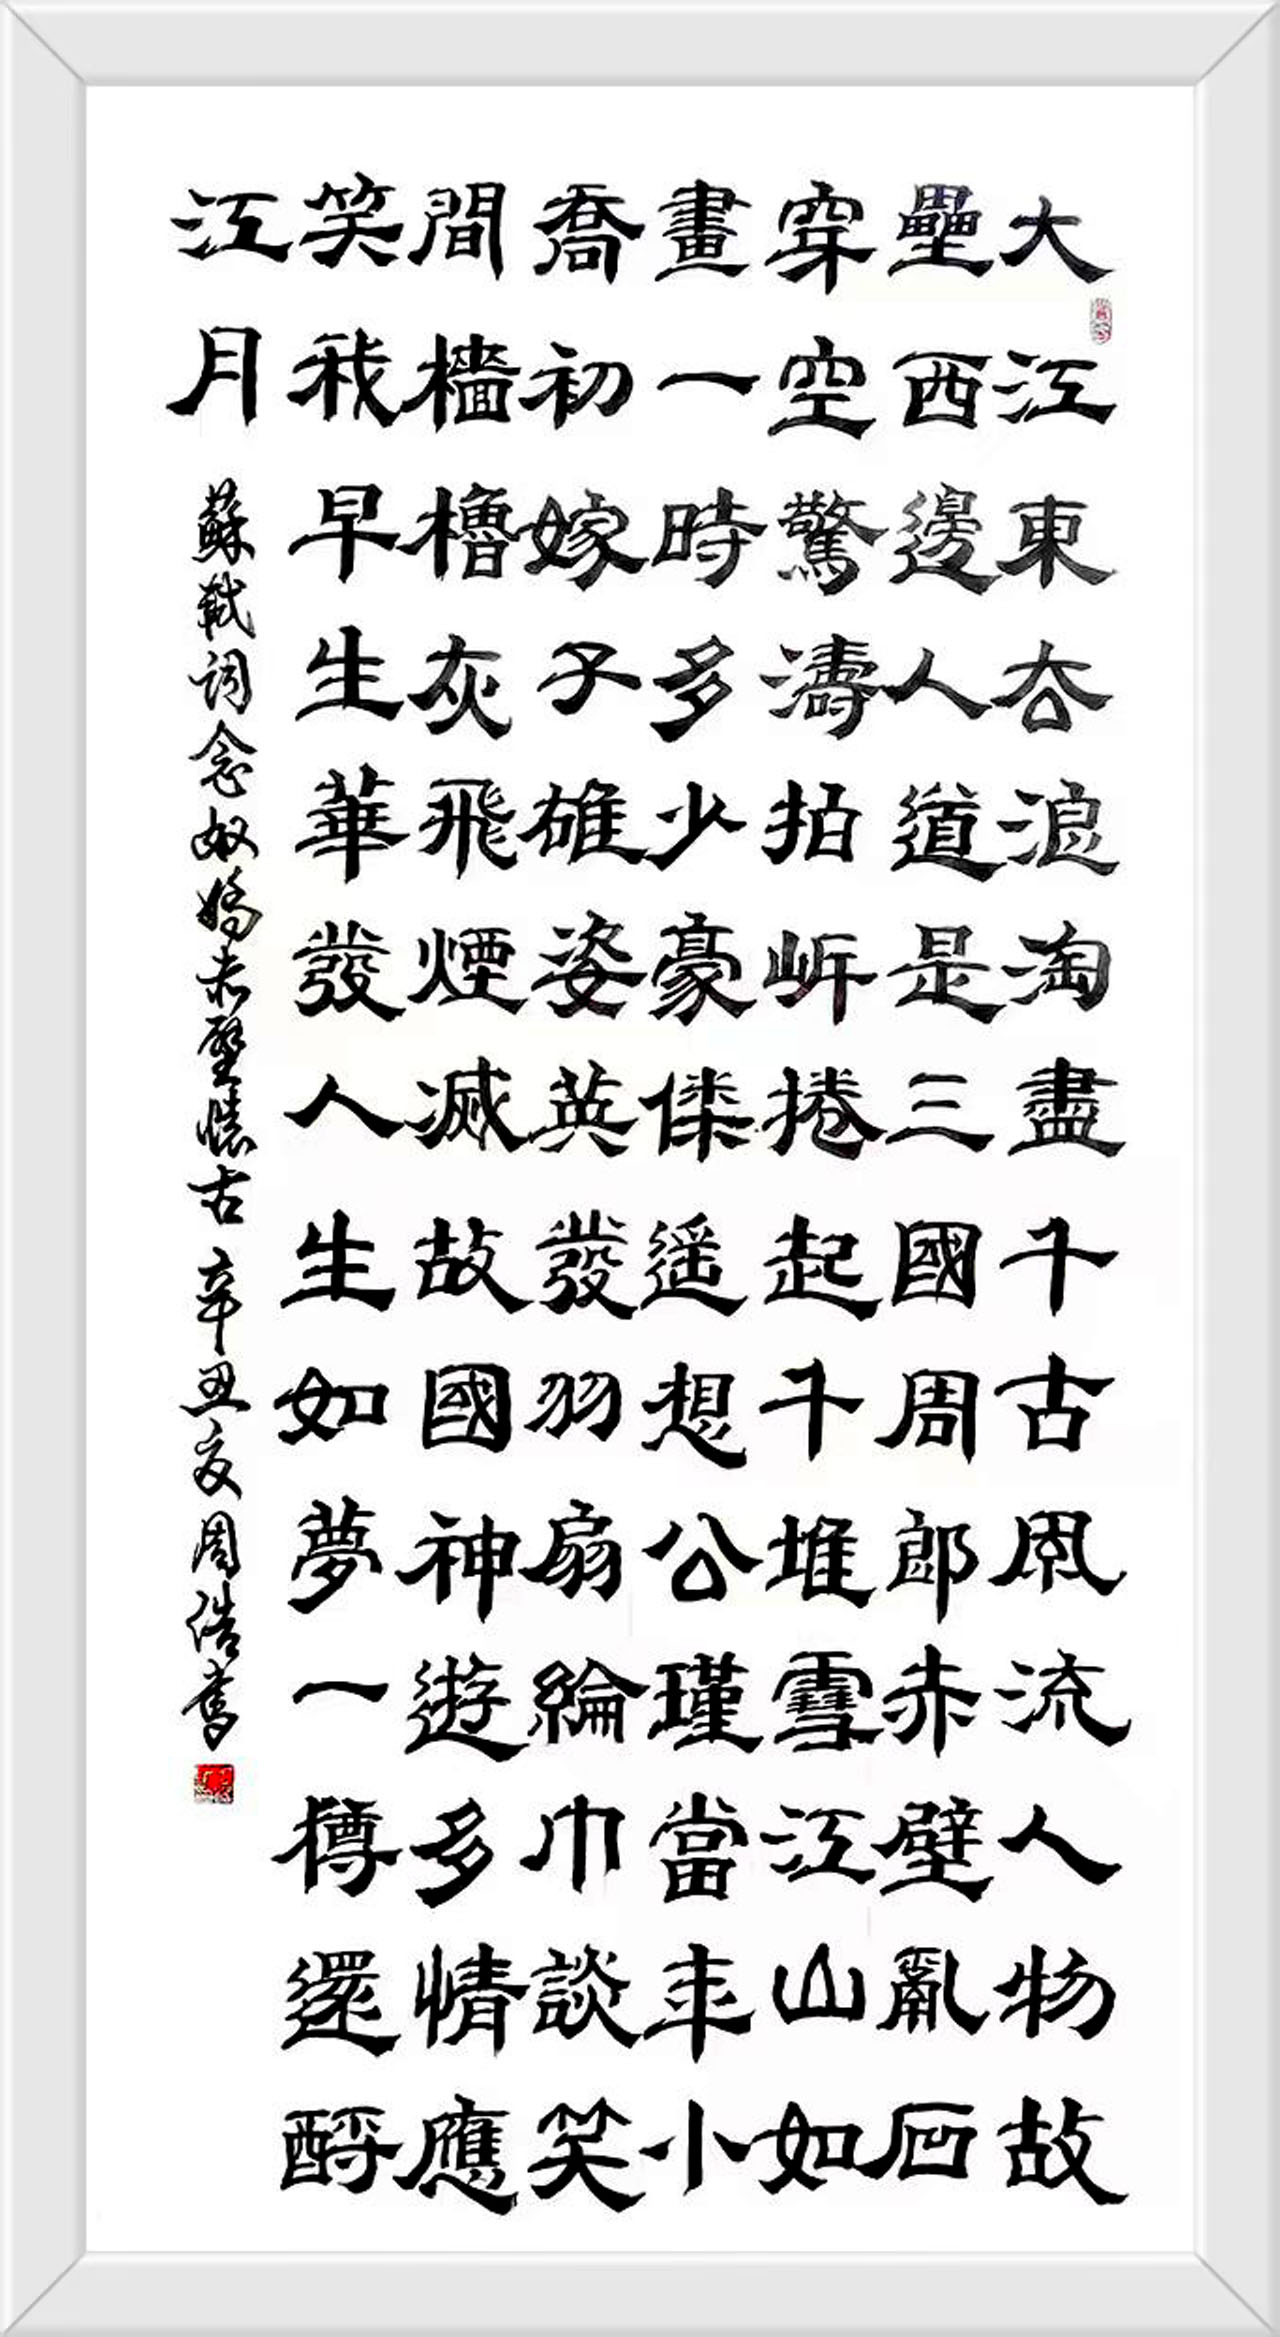 大江東去浪淘盡千古風流人物故
壘西邊人道是三國周郎赤壁亂石
穿空驚濤拍岸捲起千堆雪江山如
畫一時多少豪傑遥想公瑾當年小
喬初嫁子雄姿英發羽扇綸巾談笑
間檣櫓灰飛煙滅故國神遊多情應
笑我早生華發人生如夢一樽還酹
江月
蘇軾詞念奴嬌赤壁懷古 辛丑夏周浩書